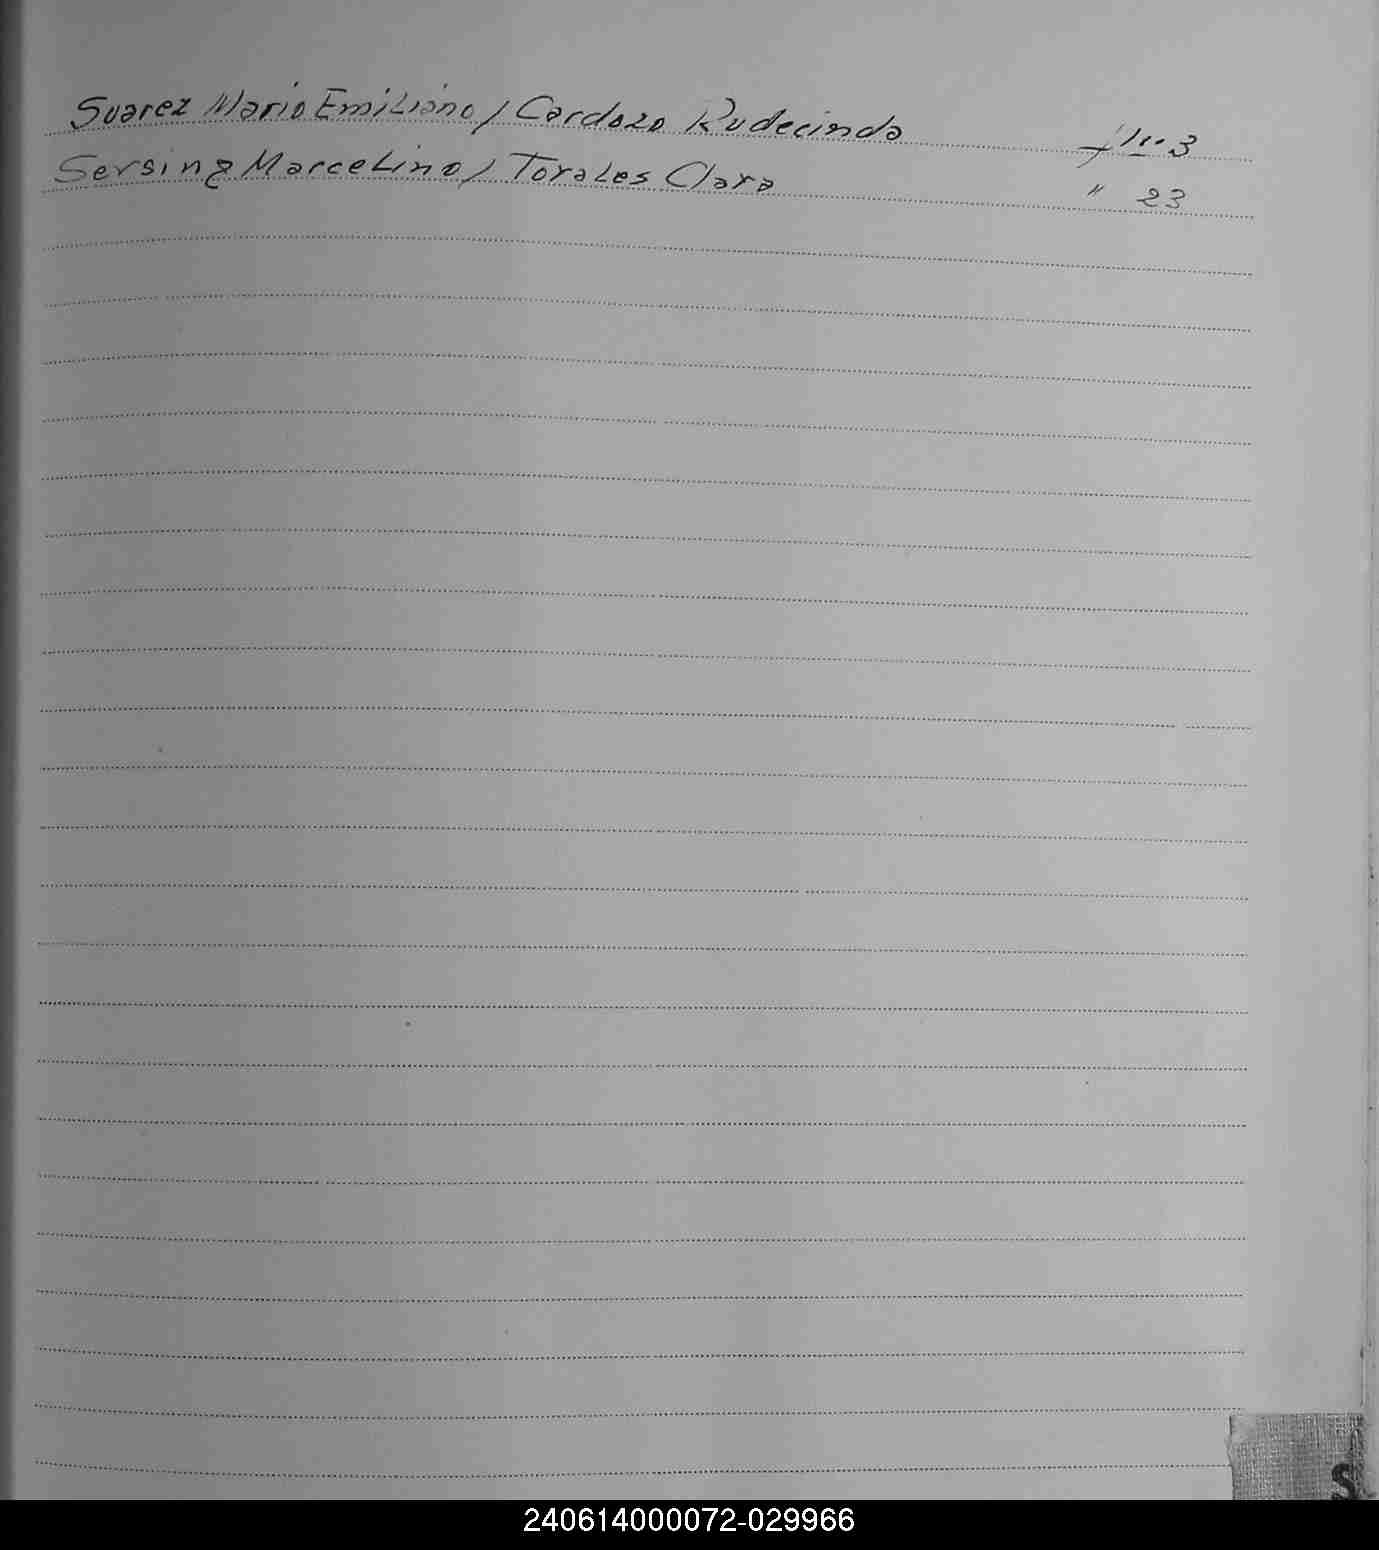 Suarez Mario Emiliano / Cardozo Rudecinda f/ 3
Sersing Marcelino / Torales Clara " 23
S
240614000072-029966